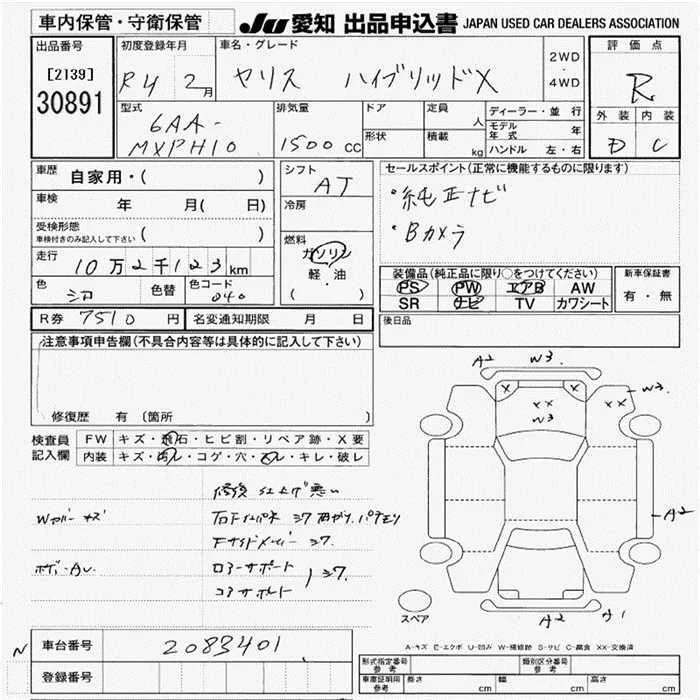 車内保管・守衛保管 JU 愛知 出品申込書 JAPAN USED CAR DEALERS ASSOCIATION
出品番号 初度登録年月 車名・グレード 評価点
[2139] R4 2月 ヤリス ハイブリッドX 2WD ・ 4WD R
30891 型式 排気量 ドア 定員 人 ディーラー・並行 外装 内装
6AA- モデル年式 年 D C
MXPH10 1500 CC 形状 積載 kg ハンドル 左・右
車歴 自家用・( ) シフト AT セールスポイント(正常に機能するものに限ります)
車検 年 月( 日) 冷房 ・純正ナビ
受検形態 車検付きのみ記入して下さい ( ) ・Bカメラ
走行 10万2千123km 燃料 ガソリン
軽・油 装備品(純正品に限り○をつけてください) 新車保証書
色 シロ 色替 色コード 040 ( ) PS PW エアB AW 有・無
SR ナビ TV カワシート
R券 7510 円 名変通知期限 月 日 後日品
注意事項申告欄(不具合内容等は具体的に記入して下さい)
修復歴 有(箇所
検査員記入欄 FW キズ・飛石・ヒビ割・リペア跡・X要
内装 キズ・汚レ・コゲ・穴・スレ・キレ・破レ
修復 仕上げ悪い
Wカバー キズ
Fサイドメンバー シワ
ロアーサポート
コアサポート シワ
A2 W3.
X X
XX W3
XX W3.
A2
A2 A1
スペア
A-キズ E-エクボ U-凹み W-補修跡 S-サビ C-腐食 XX-交換済
N 車台番号 2083401
登録番号
型式指定番号 参考 類別区分番号 参考
車庫証明用 参考 長さ cm 幅 cm 高さ cm